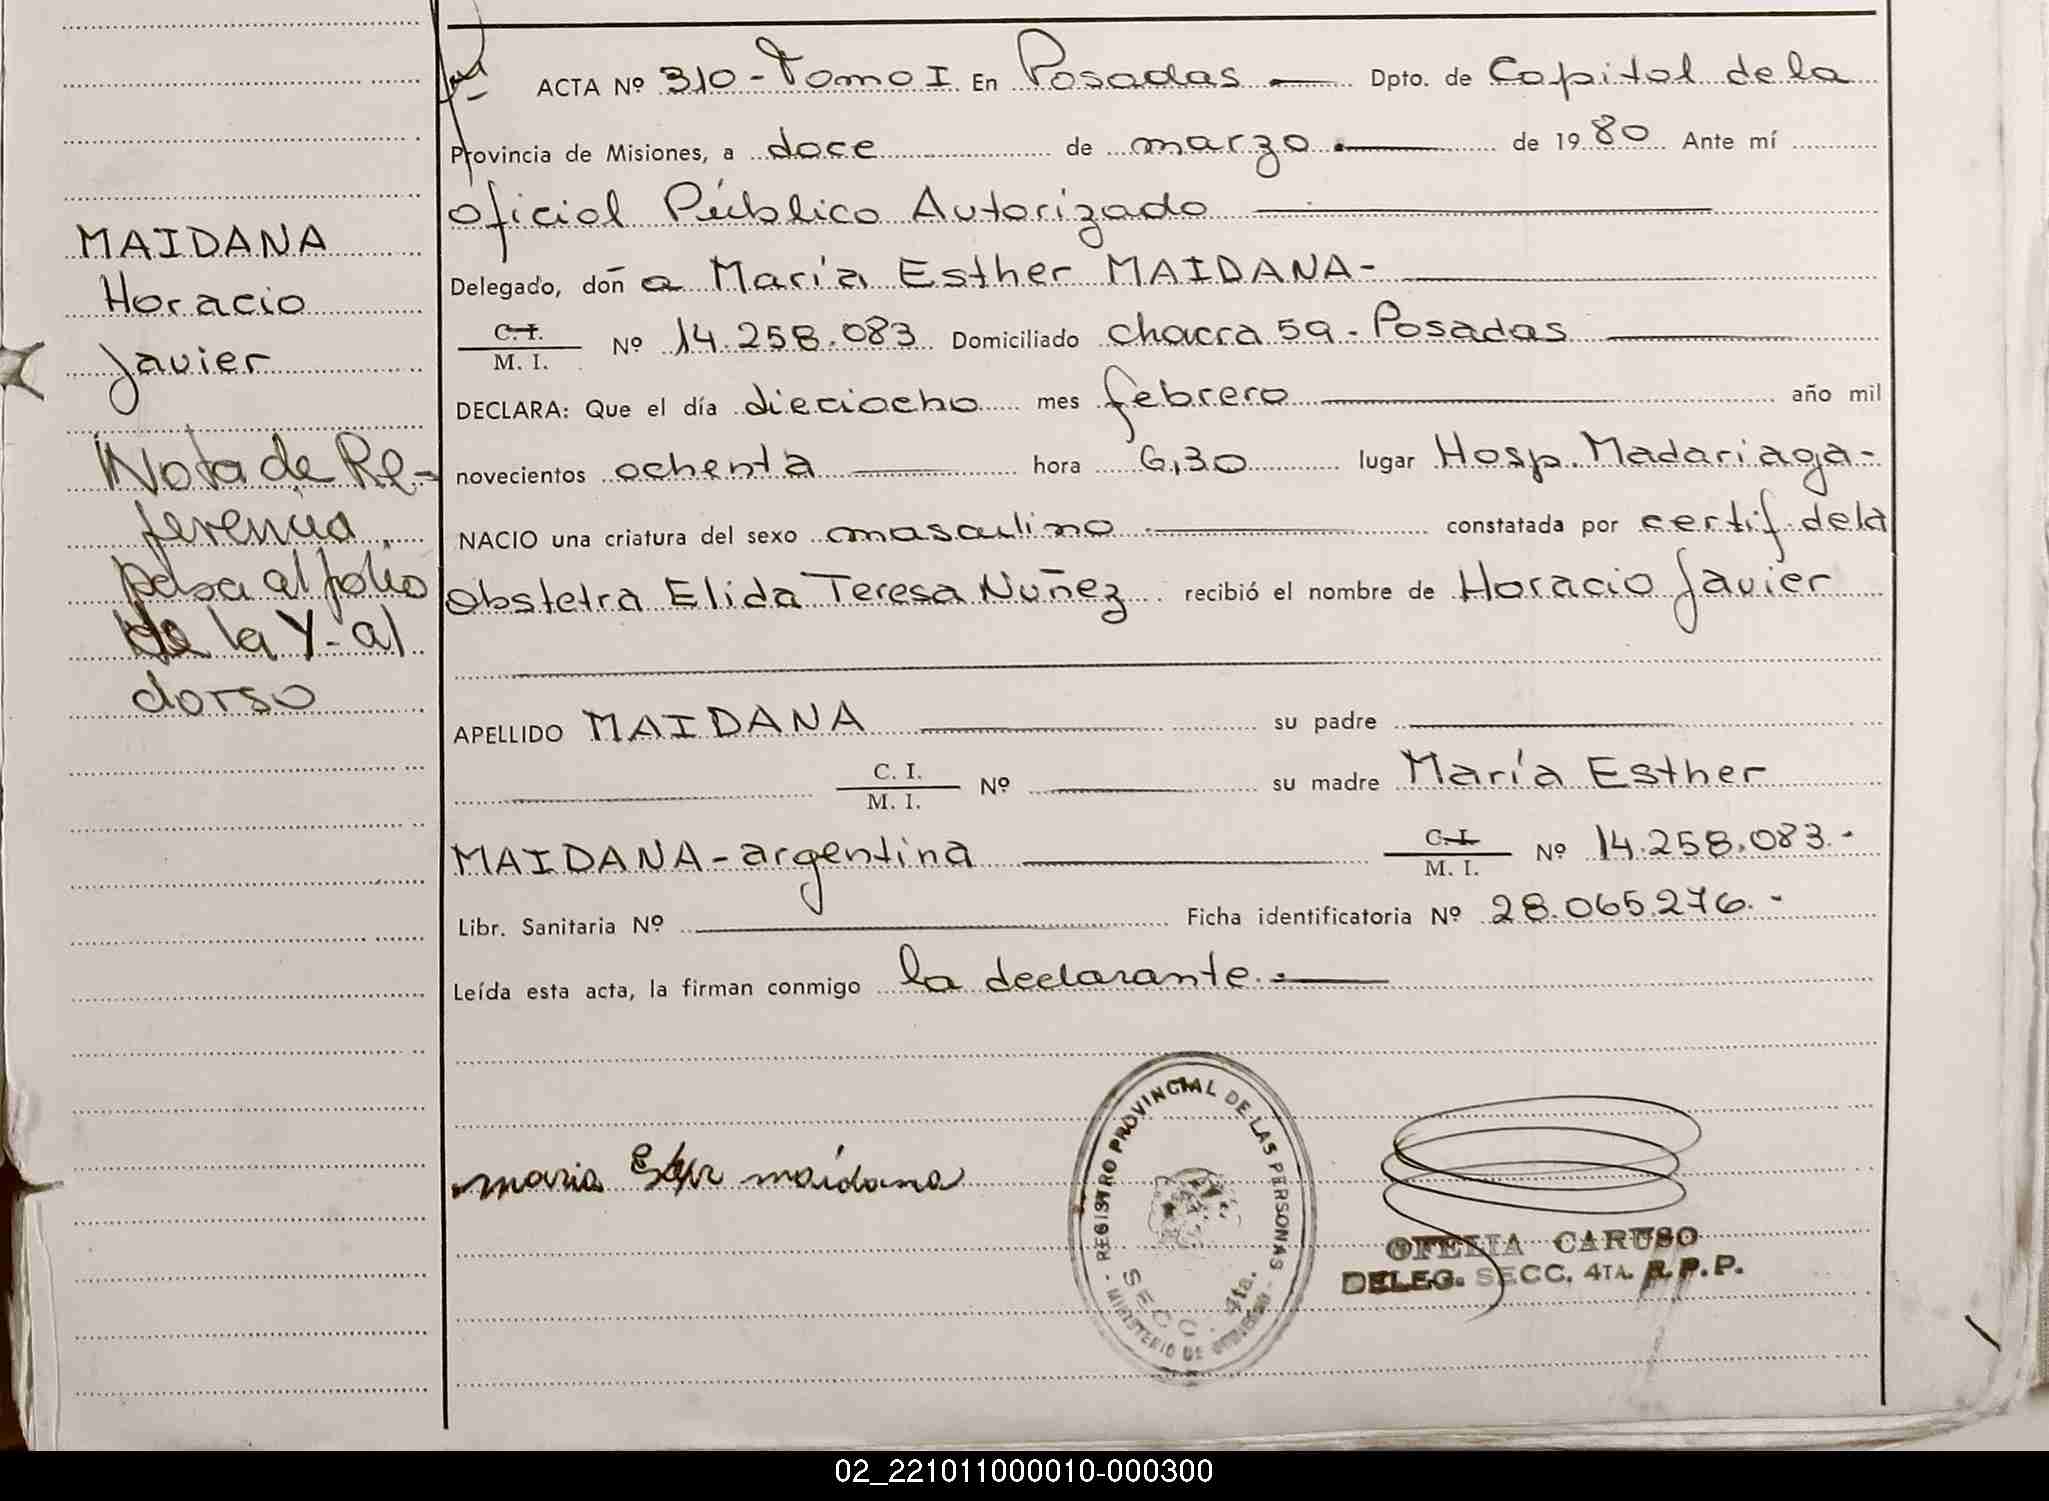 ACTA Nº 310 - Tomo I En Posadas Dpto. de Capital de la
Provincia de Misiones, a doce de marzo de 1980 Ante mí
Oficial Público Autorizado
Delegado, doña María Esther MAIDANA-
C.I.
M. I. Nº 14.258.083 Domiciliado Chacra 59 - Posadas
DECLARA: Que el día dieciocho mes febrero año mil
novecientos ochenta hora 6,30 lugar Hosp. Madariaga-
NACIO una criatura del sexo masculino constatada por certif. de la
Obstetra Elida Teresa Nuñez recibió el nombre de Horacio Javier
APELLIDO MAIDANA su padre
C. I.
M. I. Nº su madre María Esther
MAIDANA - argentina C.I.
M. I. Nº 14.258.083.-
Libr. Sanitaria Nº Ficha identificatoria Nº 28.065.276.-
Leída esta acta, la firman conmigo la declarante.
MAIDANA
Horacio
Javier
Nota de Re-
ferencia
pasa al folio
de la Y- al
dorso
maria Ester maidana
- REGISTRO PROVINCIAL DE LAS PERSONAS -
SECC. 4ta.
MINISTERIO DE GOBIERNO
OFELIA CARUSO
DELEG. SECC. 4TA. R.P.P.
02_221011000010-000300